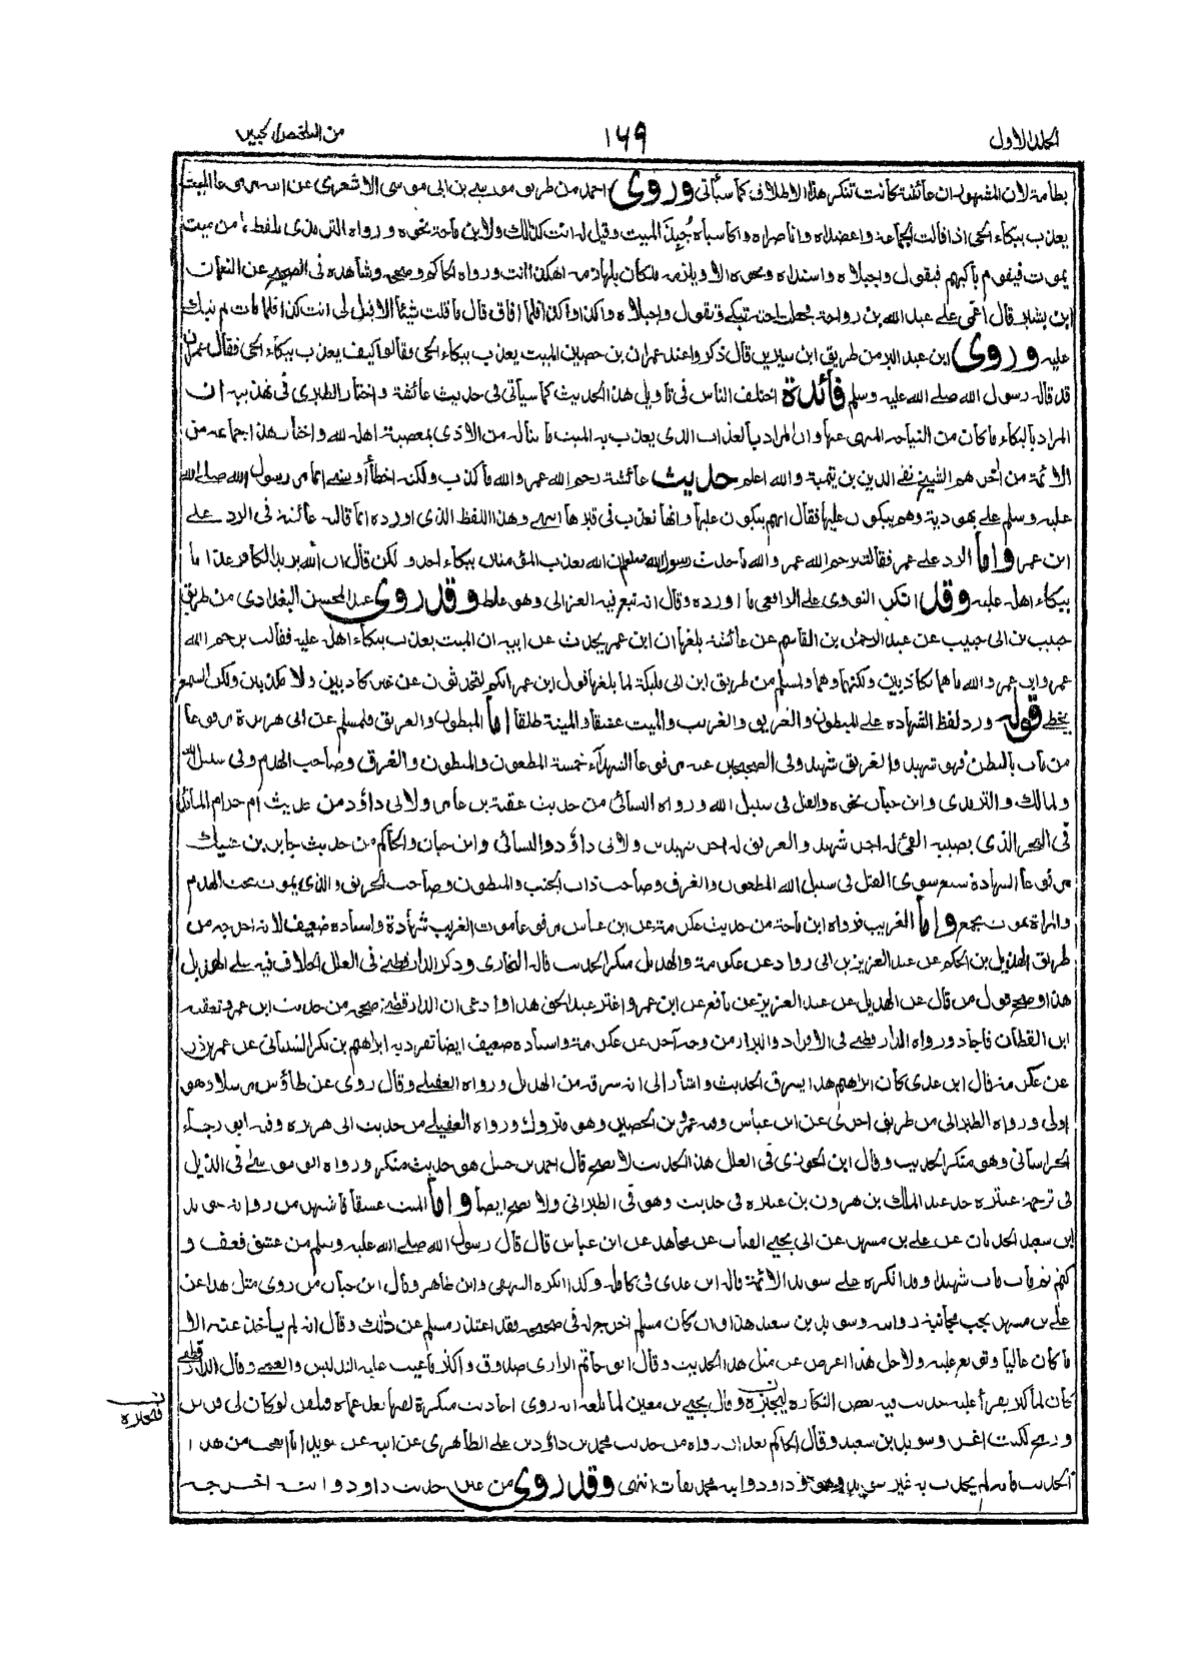 الجلد الاول
١٦٩
من التلخيص الحبير
لان المشهور ان عائشة كانت تنكر هذا الاطلاق كما سيأتى وروى احمد من طريق موسى بن ابى موسى الاشعرى عن ابيه مرفوعا الميت
يعذب ببكاء الحى اذا قالت الجماعة واعضداه واناصراه واكاسباه جبذ الميت وقيل له انت كذلك ولابن ماجة نحوه ورواه الترمذى بلفظ ما من ميت
يموت فيقوم باكيهم فيقول واجبلاه واسنداه ونحوه الا ويلزمه ملكان يلهزانه اهكذا انت ورواه الحاكم وصححه وشاهده فى الصحيح عن النعمان
ابن بشير قال اغمى على عبد الله بن رواحة فجعلت اخته تبكى وتقول واجبلاه واكذا واكذا فلما افاق قال ما قلت شيئا الا قيل لى انت كذا فلما مات لم تبك
عليه وروى ابن عبد البر من طريق ابن سيرين قال ذكروا عند عمران بن حصين الميت يعذب ببكاء الحى فقالوا كيف يعذب ببكاء الحى فقال عمران
قد قاله رسول الله صلى الله عليه وسلم فائدة اختلف الناس فى تاويل هذا الحديث كما سيأتى فى حديث عائشة واختار الطبرى فى تهذيبه ان
المراد بالبكاء ما كان من النياحة المنهى عنها وان المراد بالعذاب الذى يعذب به الميت ما يناله من الاذى بمعصية اهله لله واختار هذا جماعة من
الائمة من اخرهم الشيخ تقى الدين بن تيمية والله اعلم حديث عائشة رحم الله عمر والله ما كذب ولكنه اخطأ او نسى انما مر رسول الله صلى الله
عليه وسلم على يهودية وهم يبكون عليها فقال انهم يبكون عليها وانها تعذب فى قبرها اسمى وهذا اللفظ الذى اورده انما قالته عائشة فى الرد على
ابن عمر واما الرد على عمر فقالت يرحم الله عمر والله ما حدث رسول الله صلعم ان الله يعذب المؤمنين ببكاء احد ولكن قال ان الله يزيد الكافر عذابا
ببكاء اهله عليه وقد انكر النووى على الرافعى ما اورده وقال انه تبع فيه الغزالى وهو غلط وقد روى عبد المحسن البغدادى من طريق
حبيب بن ابى حبيب عن عبد الرحمان بن القاسم عن عائشة بلغها ان ابن عمر يحدث عن ابيه ان الميت يعذب ببكاء اهله عليه فقالت يرحم الله
عمر وابن عمر والله ما هما بكاذبين ولكنهما وهما ولمسلم من طريق ابن ابى مليكة لما بلغها قول ابن عمر انكم لتحدثون عن غير كاذبين ولا مكذبين ولكن السمع
يخطى قوله ورد لفظ الشهادة على المبطون والغريق والغريب والميت عشقا والميتة طلقا اما المبطون والغريق فلمسلم عن ابى هريرة مرفوعا
من مات بالبطن فهو شهيد والغريق شهيد وفى الصحيحين عنه مرفوعا الشهداء خمسة المطعون والمبطون والغرق وصاحب الهدم وفى سبيل الله
ولمالك والترمذى وابن حبان نحوه والقتل فى سبيل الله ورواه النسائى من حديث عقبة بن عامر ولابى داؤد من حديث ام حرام المائد
فى البحر الذى يصيبه القئ له اجر شهيد والغريق له اجر شهيدين ولابى داؤد والنسائى وابن حبان والحاكم من حديث جابر بن عتيك
مرفوعا الشهادة سبع سوى القتل فى سبيل الله المطعون والغرق وصاحب ذات الجنب والمبطون وصاحب الحريق والذى يموت تحت الهدم
والمراة تموت بجمع واما الغريب فرواه ابن ماجة من حديث عكرمة عن ابن عباس مرفوعا موت الغريب شهادة واسناده ضعيف لانه اخرجه من
طريق الهذيل بن الحكم عن عبد العزيز بن ابى رواد عن عكرمة والهذيل منكر الحديث قاله البخارى وذكر الدارقطنى فى العلل الخلاف فيه على الهذيل
هذا وصحح قول من قال عن الهذيل عن عبد العزيز عن نافع عن ابن عمر واغتر عبد الحق بهذا وادعى ان الدارقطنى صححه من حديث ابن عمر وتعقبه
ابن القطان فاجاد ورواه الدارقطنى فى الافراد والبزار من وجه آخر عن عكرمة واسناده ضعيف ايضا تفرد به ابراهيم بن بكر الشيبانى عن عمر بن ذر
عن عكرمة قال ابن عدى كان ابراهيم هذا يسرق الحديث واشار الى انه سرقه من الهذيل ورواه العقيلى وقال روى عن طاؤس مرسلا وهو
اولى ورواه الطبرانى من طريق اخرى عن ابن عباس وفيه عمرو بن الحصين وهو متروك ورواه العقيلى من حديث ابى هريرة وفيه ابو رجاء
الخراسانى وهو منكر الحديث وقال ابن الجوزى فى العلل هذا الحديث لا يصح قال احمد بن حنبل هو حديث منكر ورواه ابو موسى فى الذيل
فى ترجمة عنترة جد عبد الملك بن هرون بن عنترة فى حديث وهو فى الطبرانى ولا يصح ايضا واما الميت عشقا فاشتهر من رواية سويد
ابن سعيد الحدثانى عن على بن مسهر عن ابى يحيى القتات عن مجاهد عن ابن عباس قال قال رسول الله صلى الله عليه وسلم من عشق فعف و
كتم ثم مات مات شهيدا وقد انكره على سويد الائمة قاله ابن عدى فى كامله وكذا انكره البيهقى وابن طاهر وقال ابن حبان من روى مثل هذا عن
على بن مسهر يجب مجانبة روايته وسويد بن سعيد هذا وان كان مسلم اخرج له فى صحيحه فقد اعتذر مسلم عن ذلك وقال انه لم ياخذ عنه الا
ما كان عاليا وتوبع عليه ولاجل هذا اعرض عن مثل هذا الحديث وقال ابو حاتم الرازى صدوق واكثر ما عيب عليه التدليس والعمى وقال الدارقطنى
كان لما كبر يقرأ عليه حديث فيه بعض النكارة فيجيزه وقال يحيى بن معين لما بلغه انه روى احاديث منكرة لقنها بعد عماه فتلقن لو كان لى فرس
ورمح لكنت اغزو سويد بن سعيد وقال الحاكم بعد ان رواه من حديث محمد بن داؤد بن على الظاهرى عن ابيه عن سويد انا اتعجب من هذا
الحديث فانه لم يحدث به غير سويد وهو وداود وابنه محمد ثقات انتهى وقد روى من غير حديث داود وابنه اخرجه